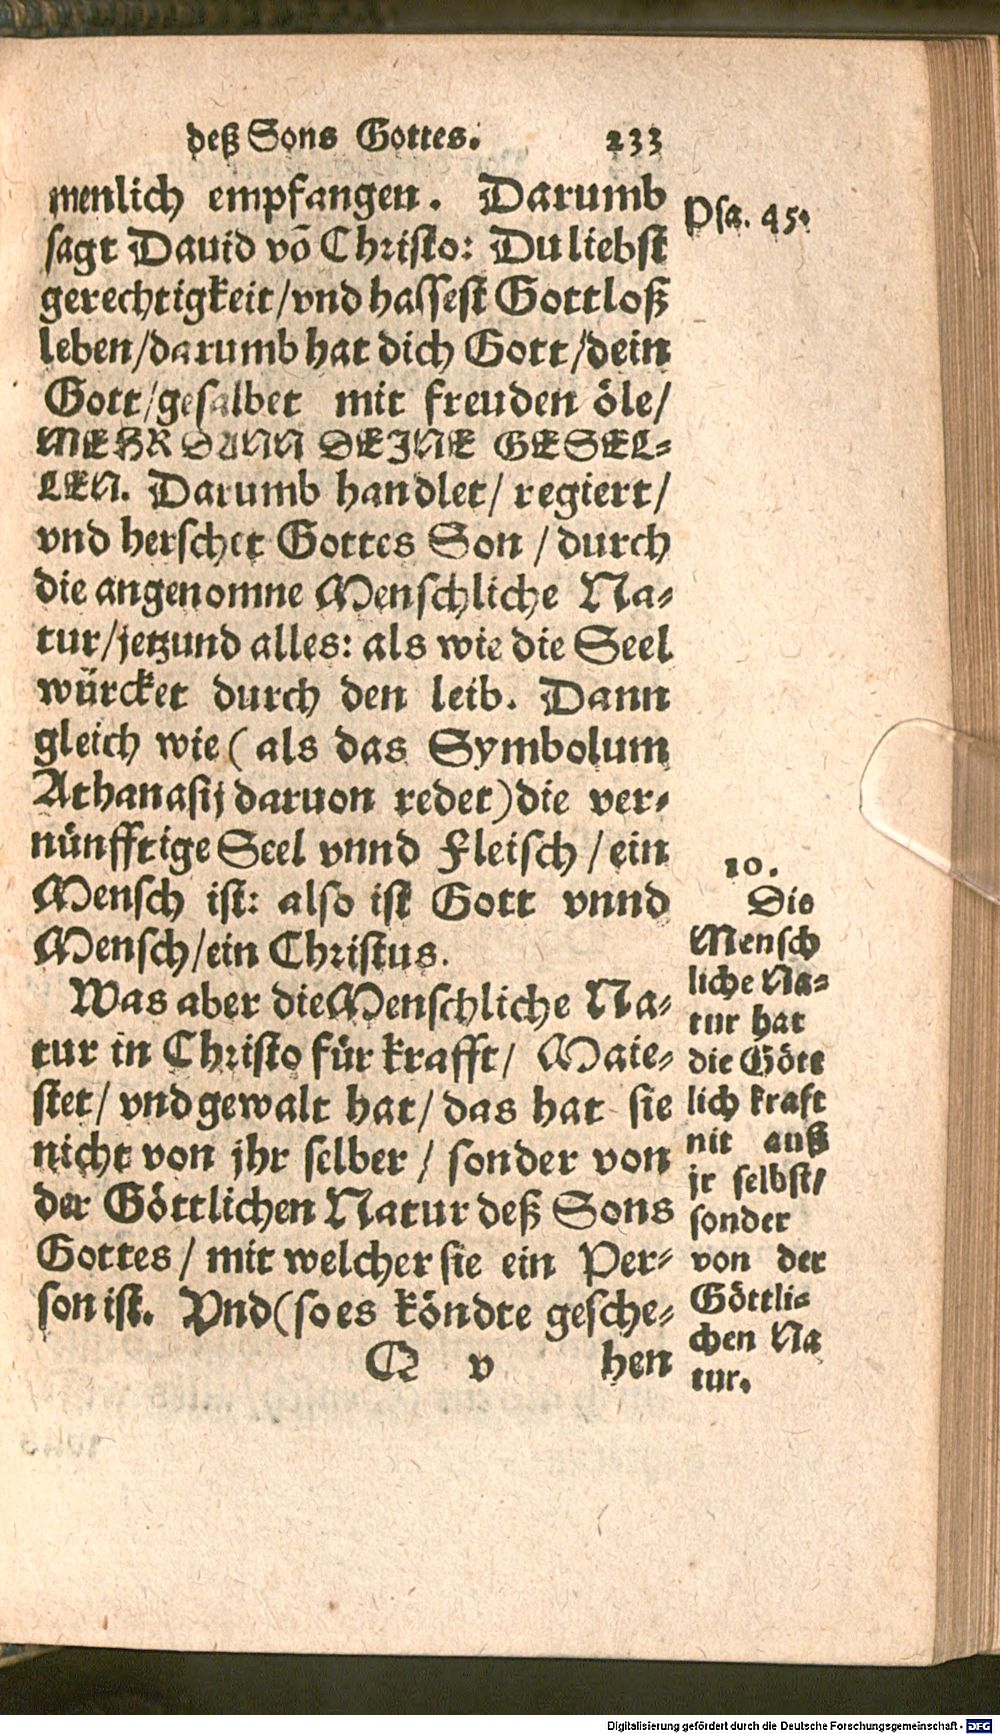 deß Sons Gottes. 233
menlich empfangen. Darumb
sagt Dauid võ Christo: Du liebst
gerechtigkeit/vnd hassest Gottloß
leben/darumb hat dich Gott/dein
Gott/gesalbet mit freuden öle/
MEHR DANN DEINE GESEL-
LEN. Darumb handlet/ regiert/
vnd herschet Gottes Son / durch
die angenomne Menschliche Na-
tur/jetzund alles: als wie die Seel
würcket durch den leib. Dann
gleich wie ( als das Symbolum
Athanasij daruon redet) die ver-
nünfftige Seel vnnd Fleisch / ein
Mensch ist: also ist Gott vnnd
Mensch/ein Christus.
Was aber die Menschliche Na-
tur in Christo für krafft/ Maie-
stet/ vnd gewalt hat/ das hat sie
nicht von jhr selber / sonder von
der Göttlichen Natur deß Sons
Gottes / mit welcher sie ein Per-
son ist. Vnd (so es köndte gesche-
Q v hen
Psa. 45.
10.
Die
Mensch
liche Na-
tur hat
die Gött
lich kraft
nit auß
jr selbst/
sonder
von der
Göttli-
chen Na
tur.
Digitalisierung gefördert durch die Deutsche Forschungsgemeinschaft - DFG